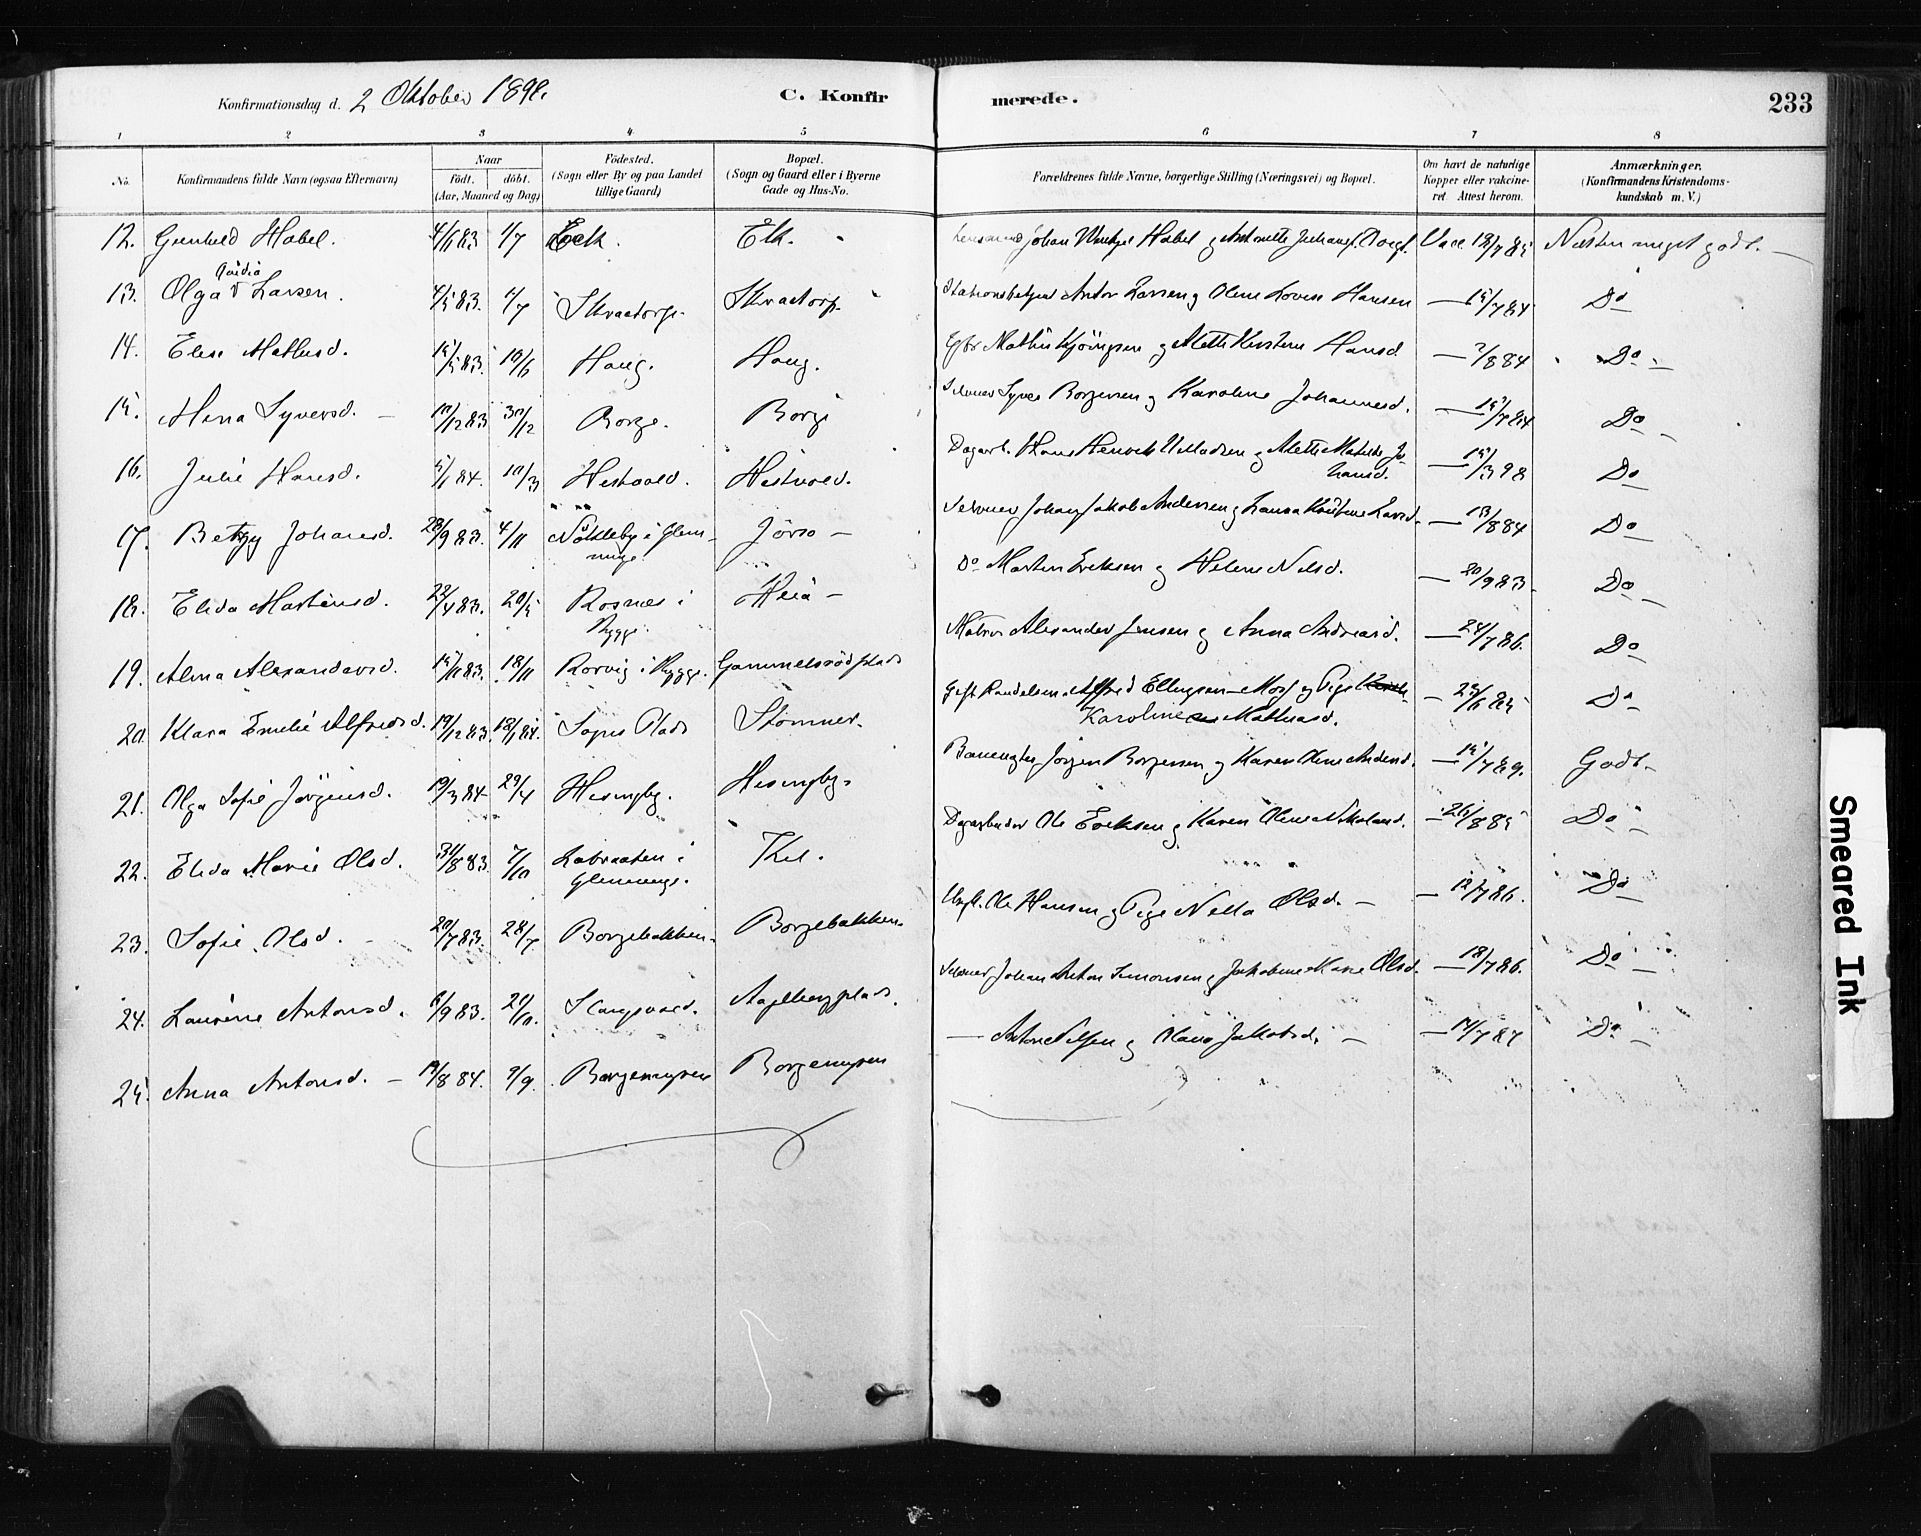 Konfirmationsdag d. 2 Oktober 1898.
C. Konfirmerede.
233
1 2 3 4 5 6 7 8
No. Konfirmandens fulde Navn (ogsaa Efternavn) Naar født. døbt. (Aar, Maaned og Dag) Födested. (Sogn eller By og paa Landet tillige Gaard) Bopæl. (Sogn og Gaard eller i Byerne Gade og Hus-No. Forældrenes fulde Navne, borgerlige Stilling (Næringsvei) og Bopæl. Om havt de naturlige Kopper eller vakcineret Attest herom. Anmærkninger. (Konfirmandens Kristendomskundskab m. V.)
12. Gunhild Habel. 4/1 83 1/7 Eek. Ek. Johan Wentzel Habel og Antonette Vacc. 18/7 85 Næsten meget godt.
13. Olga Larsen. 4/5 83. 1/7 Skraatorp. Skraatorp. Stationsbetjent Anton Larsen og Olene Lovise Hansen 15/7 84 Do
14. Elise Mathisd. 15/5 83. 10/6 Haug. Haug. Mathis og Alette Kirstine Hansd 7/8 84 Do
15. Syversd. 10/12 83 30/12 Borge. Borge Syver Borgersen og Karoline Johannesd. 15/7 84 Do
16. Julie Hansd. 5/1 84. 10/3 Hestvold. Hestvold. Dagarb. Hans Henrik og Alette Matilde Johansd. 15/3 98 Do
17. Betzy Johansd. 28/9 83. 4/11 Nökkleby i Glemminge Jörso Johan Jakob Andersen og Laura Kristine Larsd. 13/8 84 Do
18. Elida Martinsd. 22/4 83. 20/5 Rosnes i Rygge. Heia Do Martin Eriksen og Helene Nilsd. 20/9 83. Do
19. Alma Alexandersd. 15/11 83. 18/11 Rorvig i Rygge. Gammelsrødplads Matros Alexander Jensen og Anna Andreasd. 24/7 86. Do
20. Klara Emilie Alfredsd. 19/12 83. 18/1 84. Sogns Plads Stömner. Gift Alfred Ellingsen Moss og Pige Karoline Mathiasd. 25/6 85 Do
21. Olga Sofie Jørgensd. 19/3 84 29/4 Hesingby. Hesingby. Banevogter Jørgen Borgersen og Karen Olene Andersd. 15/7 89. Godt.
22. Elida Marie Olsd. 31/8 83 7/10 Labraaten i Glemminge. Thel. Dagarbeider Ole Eriksen og Karen Oline Nikolaisd. 26/8 85 Do
23. Sofie Olsd. 20/7 83. 28/7 Borgebakken. Borgebakken. Ungk. Ole Hansen og Pige Nella Olsd. 12/7 86. Do
24. Laurine Antonsd. 6/9 83. 21/10. Slangsvold. Aagelbergplads. Johan Anton Simonsen og Jakobine Marie Olsd. 18/7 86. Do
25. Anna Antonsd. 19/8 84. 7/9. Borgemyren Borgemyren Anton Nilsen og Olava Jakobsd. 14/7 87 Do
Smeared Ink